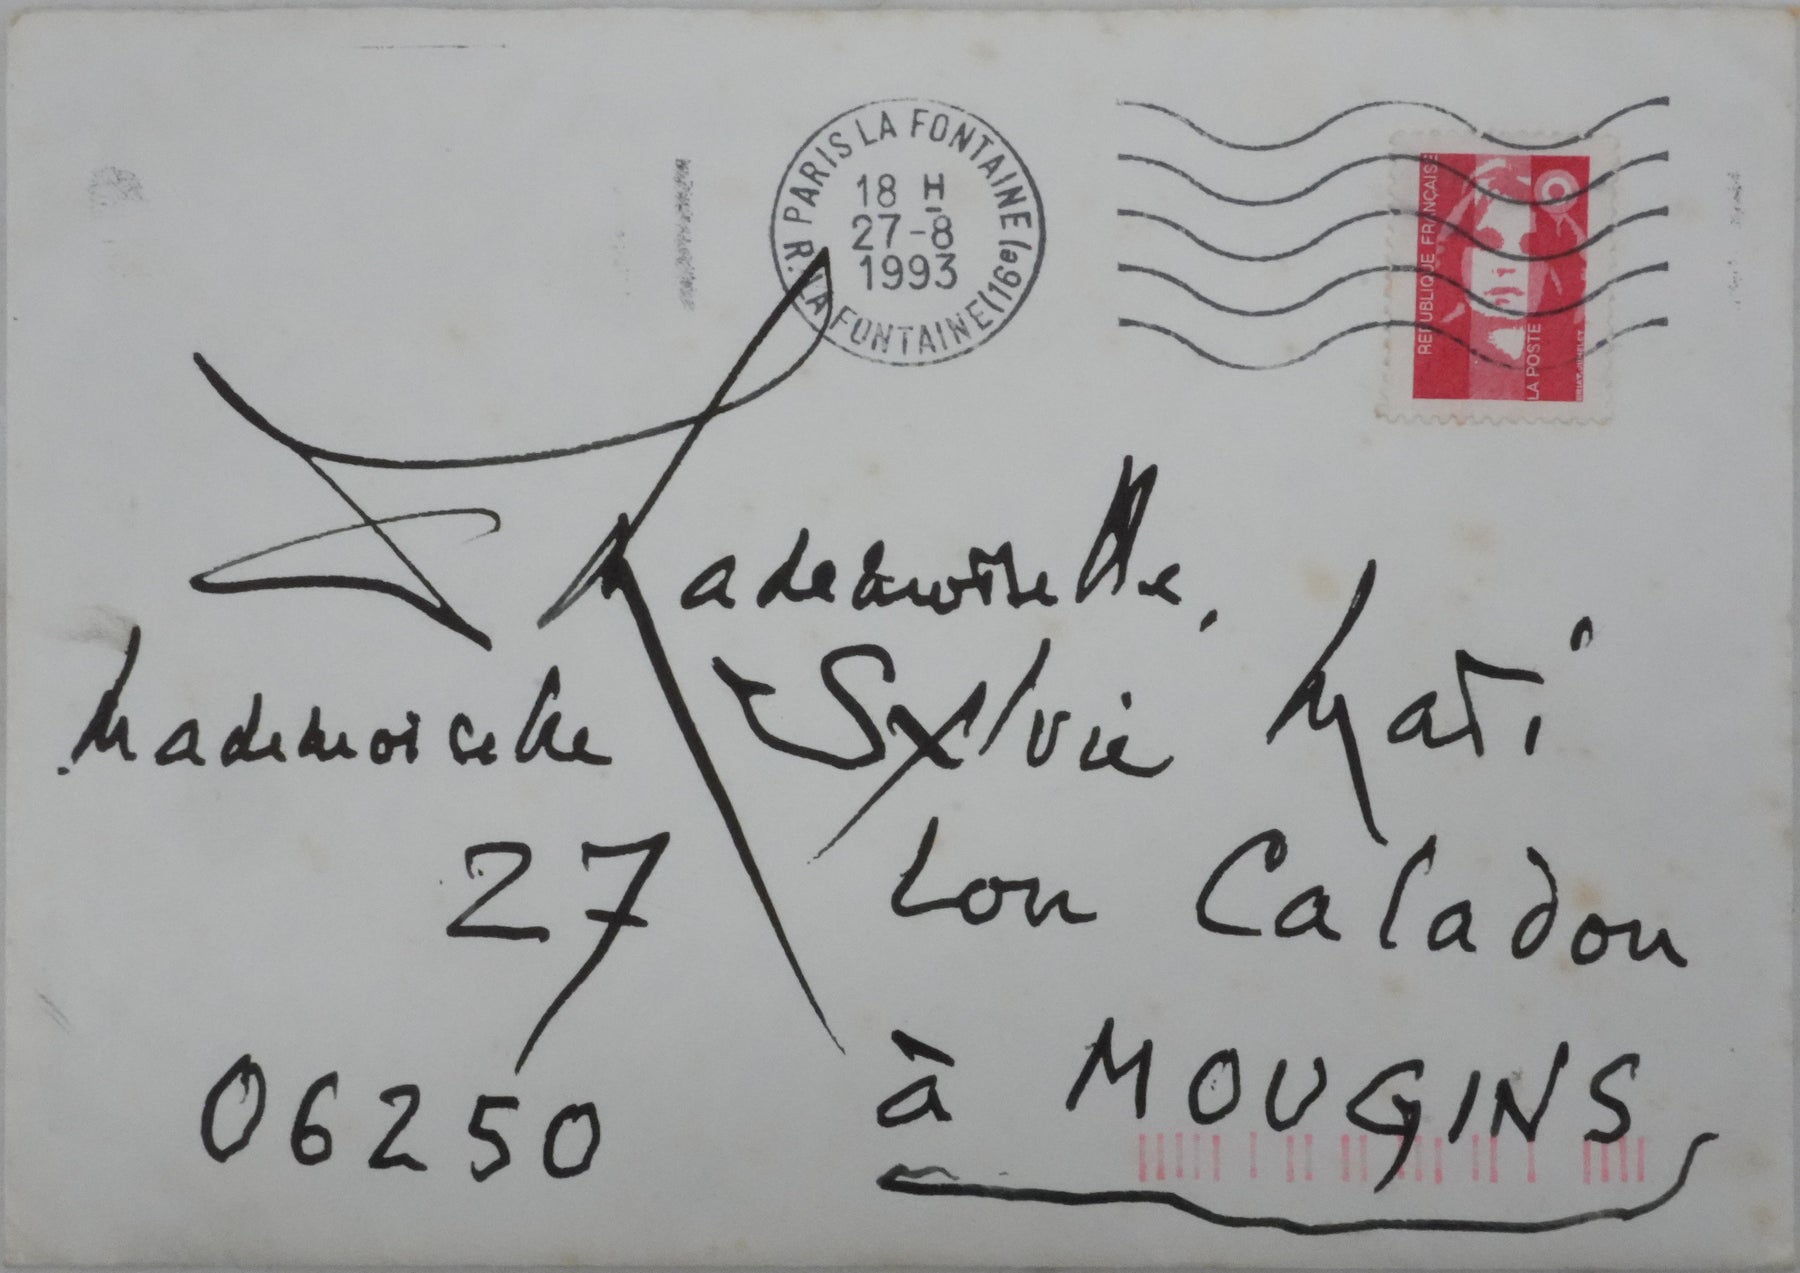 PARIS LA FONTAINE (16e)
R. LA FONTAINE
18 H
27-8
1993
REPUBLIQUE FRANÇAISE
LA POSTE
Mademoiselle,
Mademoiselle Sylvie Mati
27 Lou Caladou
06250 à MOUGINS